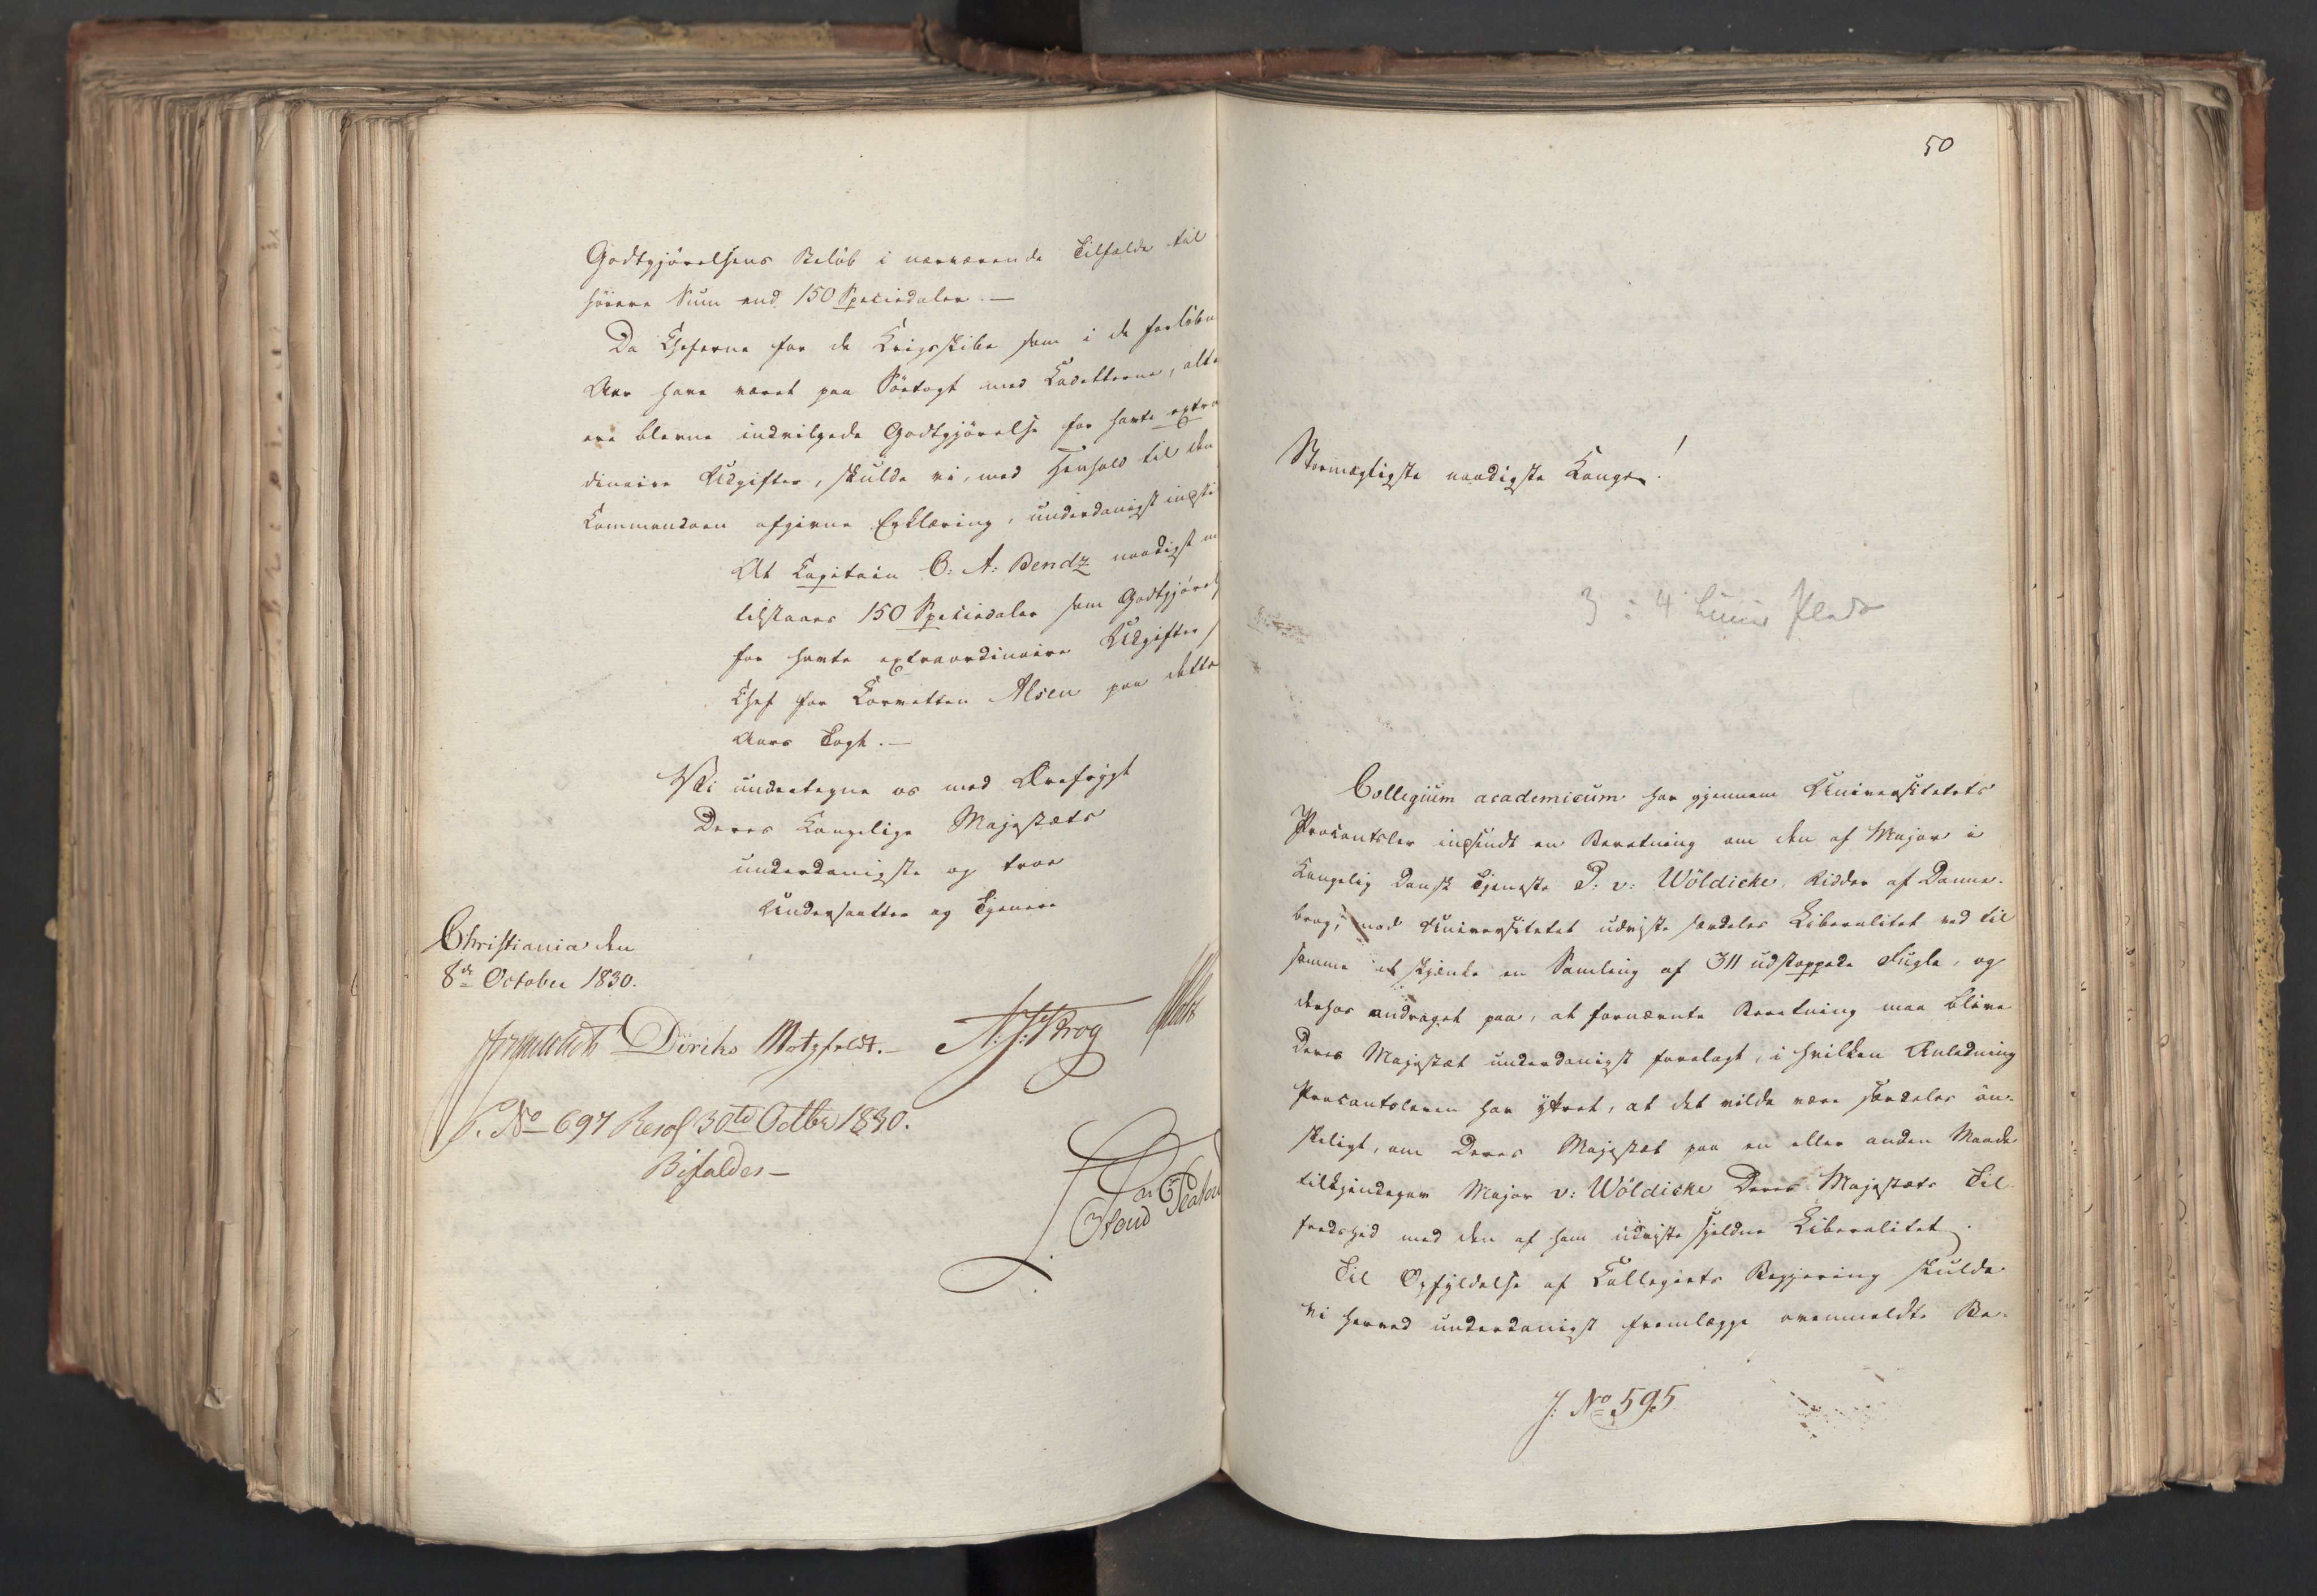 Godtgjörelsens Belöb i nærværende Tilfælde til
höiere Sum end 150 Speciedaler. —
Da Cheferne for de Krigsskibe som i de forløbne
Aar have været paa Söetogt med Cadetterne, alle
ere blevne indvilgede Godtgjörelse for havte extra
dinaire Udgifter, skulde vi, med Henhold til den
Commandoen afgivne Erklæring, underdanigst indsti
At Capitain C: A: Bendz naadigst
tilstaaes 150 Speciedaler som Godtgjörels
for havte extraordinaire Udgifter
Chef for Corvetten Alsen paa dette
Aars Togt. —
Vi undertegne os med Ærefrygt
Deres Kongelige Majestæts
underdanigste og troe
Undersaatter og Tjenere
Christiania den
8de October 1830.
Diriks Motzfeldt. — Krog
P. No 697 Resol 30te Octbr 1830.
Bifaldes —
50
Stormægtigste naadigste Konge!
3 à 4 Liniers Plads
Collegium academicum har gjennem Universitetets
Procantsler indsendt en Beretning om den af Major i
Kongelig Dansk Tjeneste P: v: Wöldicke, Ridder af Danne-
brog, mod Universitetet udviste særdeles Liberalitet ved til
samme at skjænke en Samling af 311 udstoppede Fugle, og
derhos andraget paa, at fornævnte Beretning maa blive
Deres Majestæt underdanigst forelagt, i hvilken Anledning
Procantsleren har yttret, at det vilde være særdeles ön-
skeligt, om Deres Majestæt paa en eller anden Maade
tilkjendegav Major v: Wöldicke Deres Majestæts Til-
fredshed med den af ham udviste sjeldne Liberalitet.
Til Opfyldelse af Collegiets Begjering skulde
vi herved underdanigst fremlægge ovenmeldte Be-
J: No 595